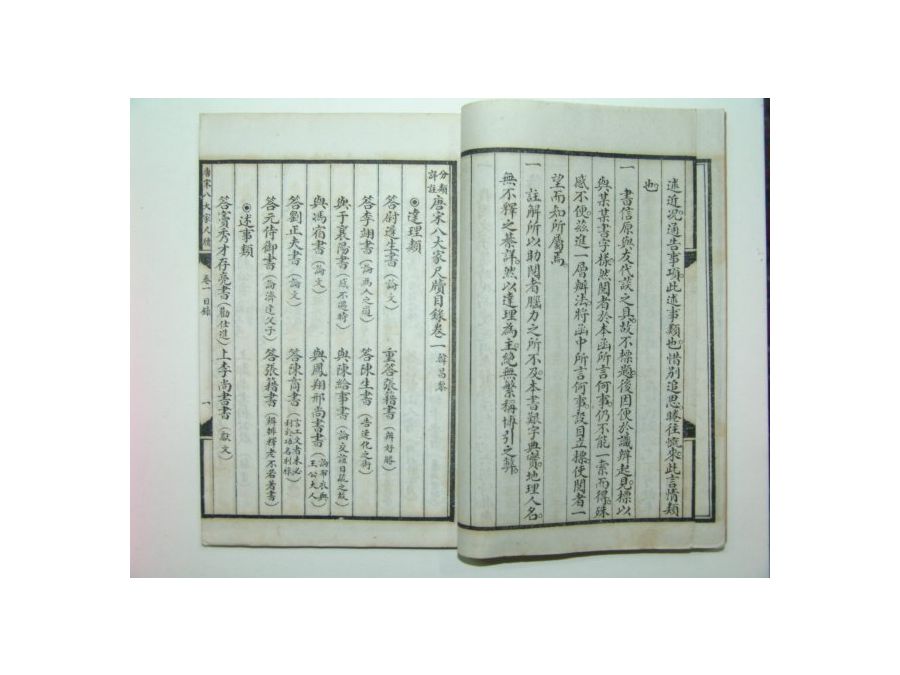 述近況通告事項此述事類也惜別追思睠往懷來此言情類
也
一 書信原與友代談之具故不標題後因便於識辨起見標以
與某某書字樣然閱者於本函所言何事仍不能一索而得殊
感不便茲進一層辦法將函中所言何事設目立標使閱者一
望而知所屬焉
一 註解所以助閱者腦力之所不及本書艱字典實地理人名
無不釋之綦詳然以達理為主絕無繁稱博引之弊
分類詳註唐宋八大家尺牘目錄卷一 韓昌黎
◉達理類
答尉遲生書（論文） 重答張籍書（辨好勝）
答李翊書（論為人之道） 答陳生書（告速化之術）
與于襄陽書（感不遇時） 與陳給事書（論交誼日疏之故）
與馮宿書（論文） 與鳳翔邢尚書書（論布衣與王公大人）
答劉正夫書（論文） 答陳商書（言工文者未必利於功名利祿）
答元侍御書（論濟逢父子） 答張籍書（辨排釋老不若著書）
◉述事類
答竇秀才存亮書（勸仕進） 上李尚書書（獻文）
唐宋八大家尺牘 卷一 目錄 一